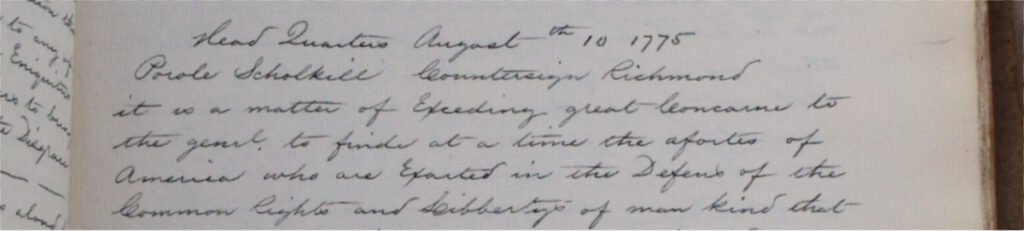 Head Quarters August th 10 1775
Porole Scholkill Countersign Richmond
it is a matter of Exceeding great Concarne to
the genrl. to finde at a time the afortes of
America who are Exarted in the Defens of the
Common Rights and Libbertys of man kind that
to any of
us to